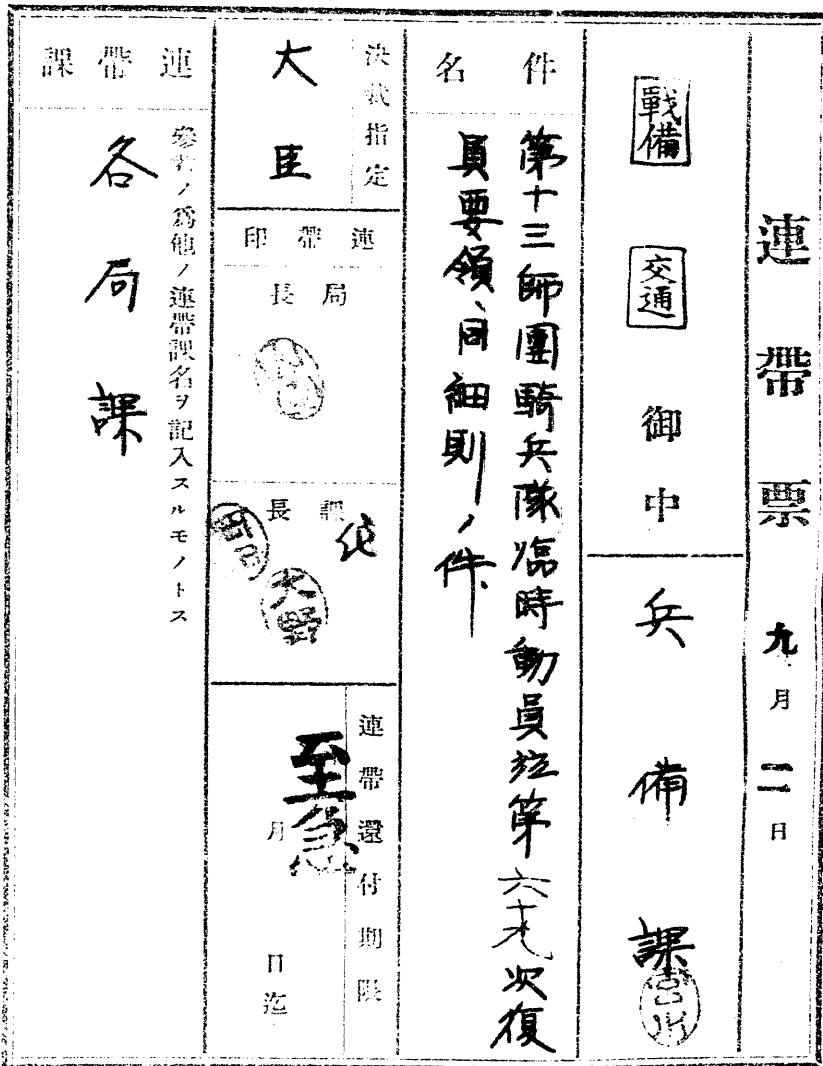 連帶票 九月二日
戰備 交通 御中
兵備課
件名
第十三師團騎兵隊臨時動員竝第六十九次復
員要領、同細則ノ件
決裁指定
大臣
連帶印
局長
課長
大野
連帶還付期限
月 日迄
至急
連帶課
參考ノ爲他ノ連帶課名ヲ記入スルモノトス
各局課